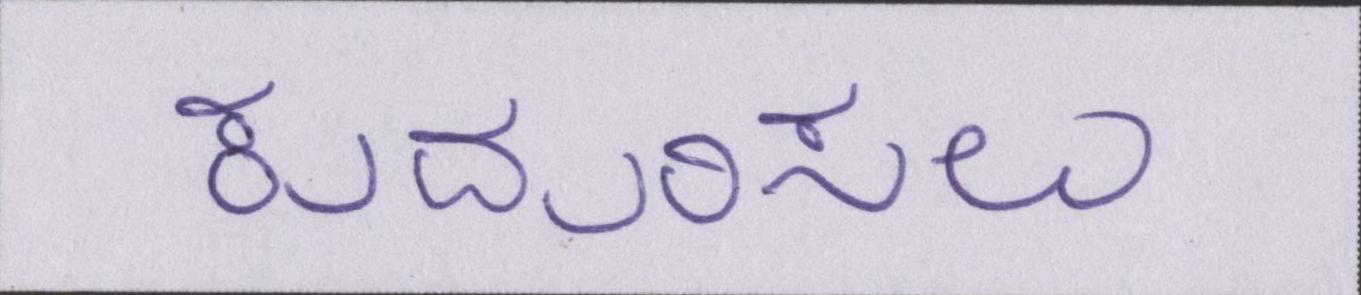 ಕುದುರಿಸಲು